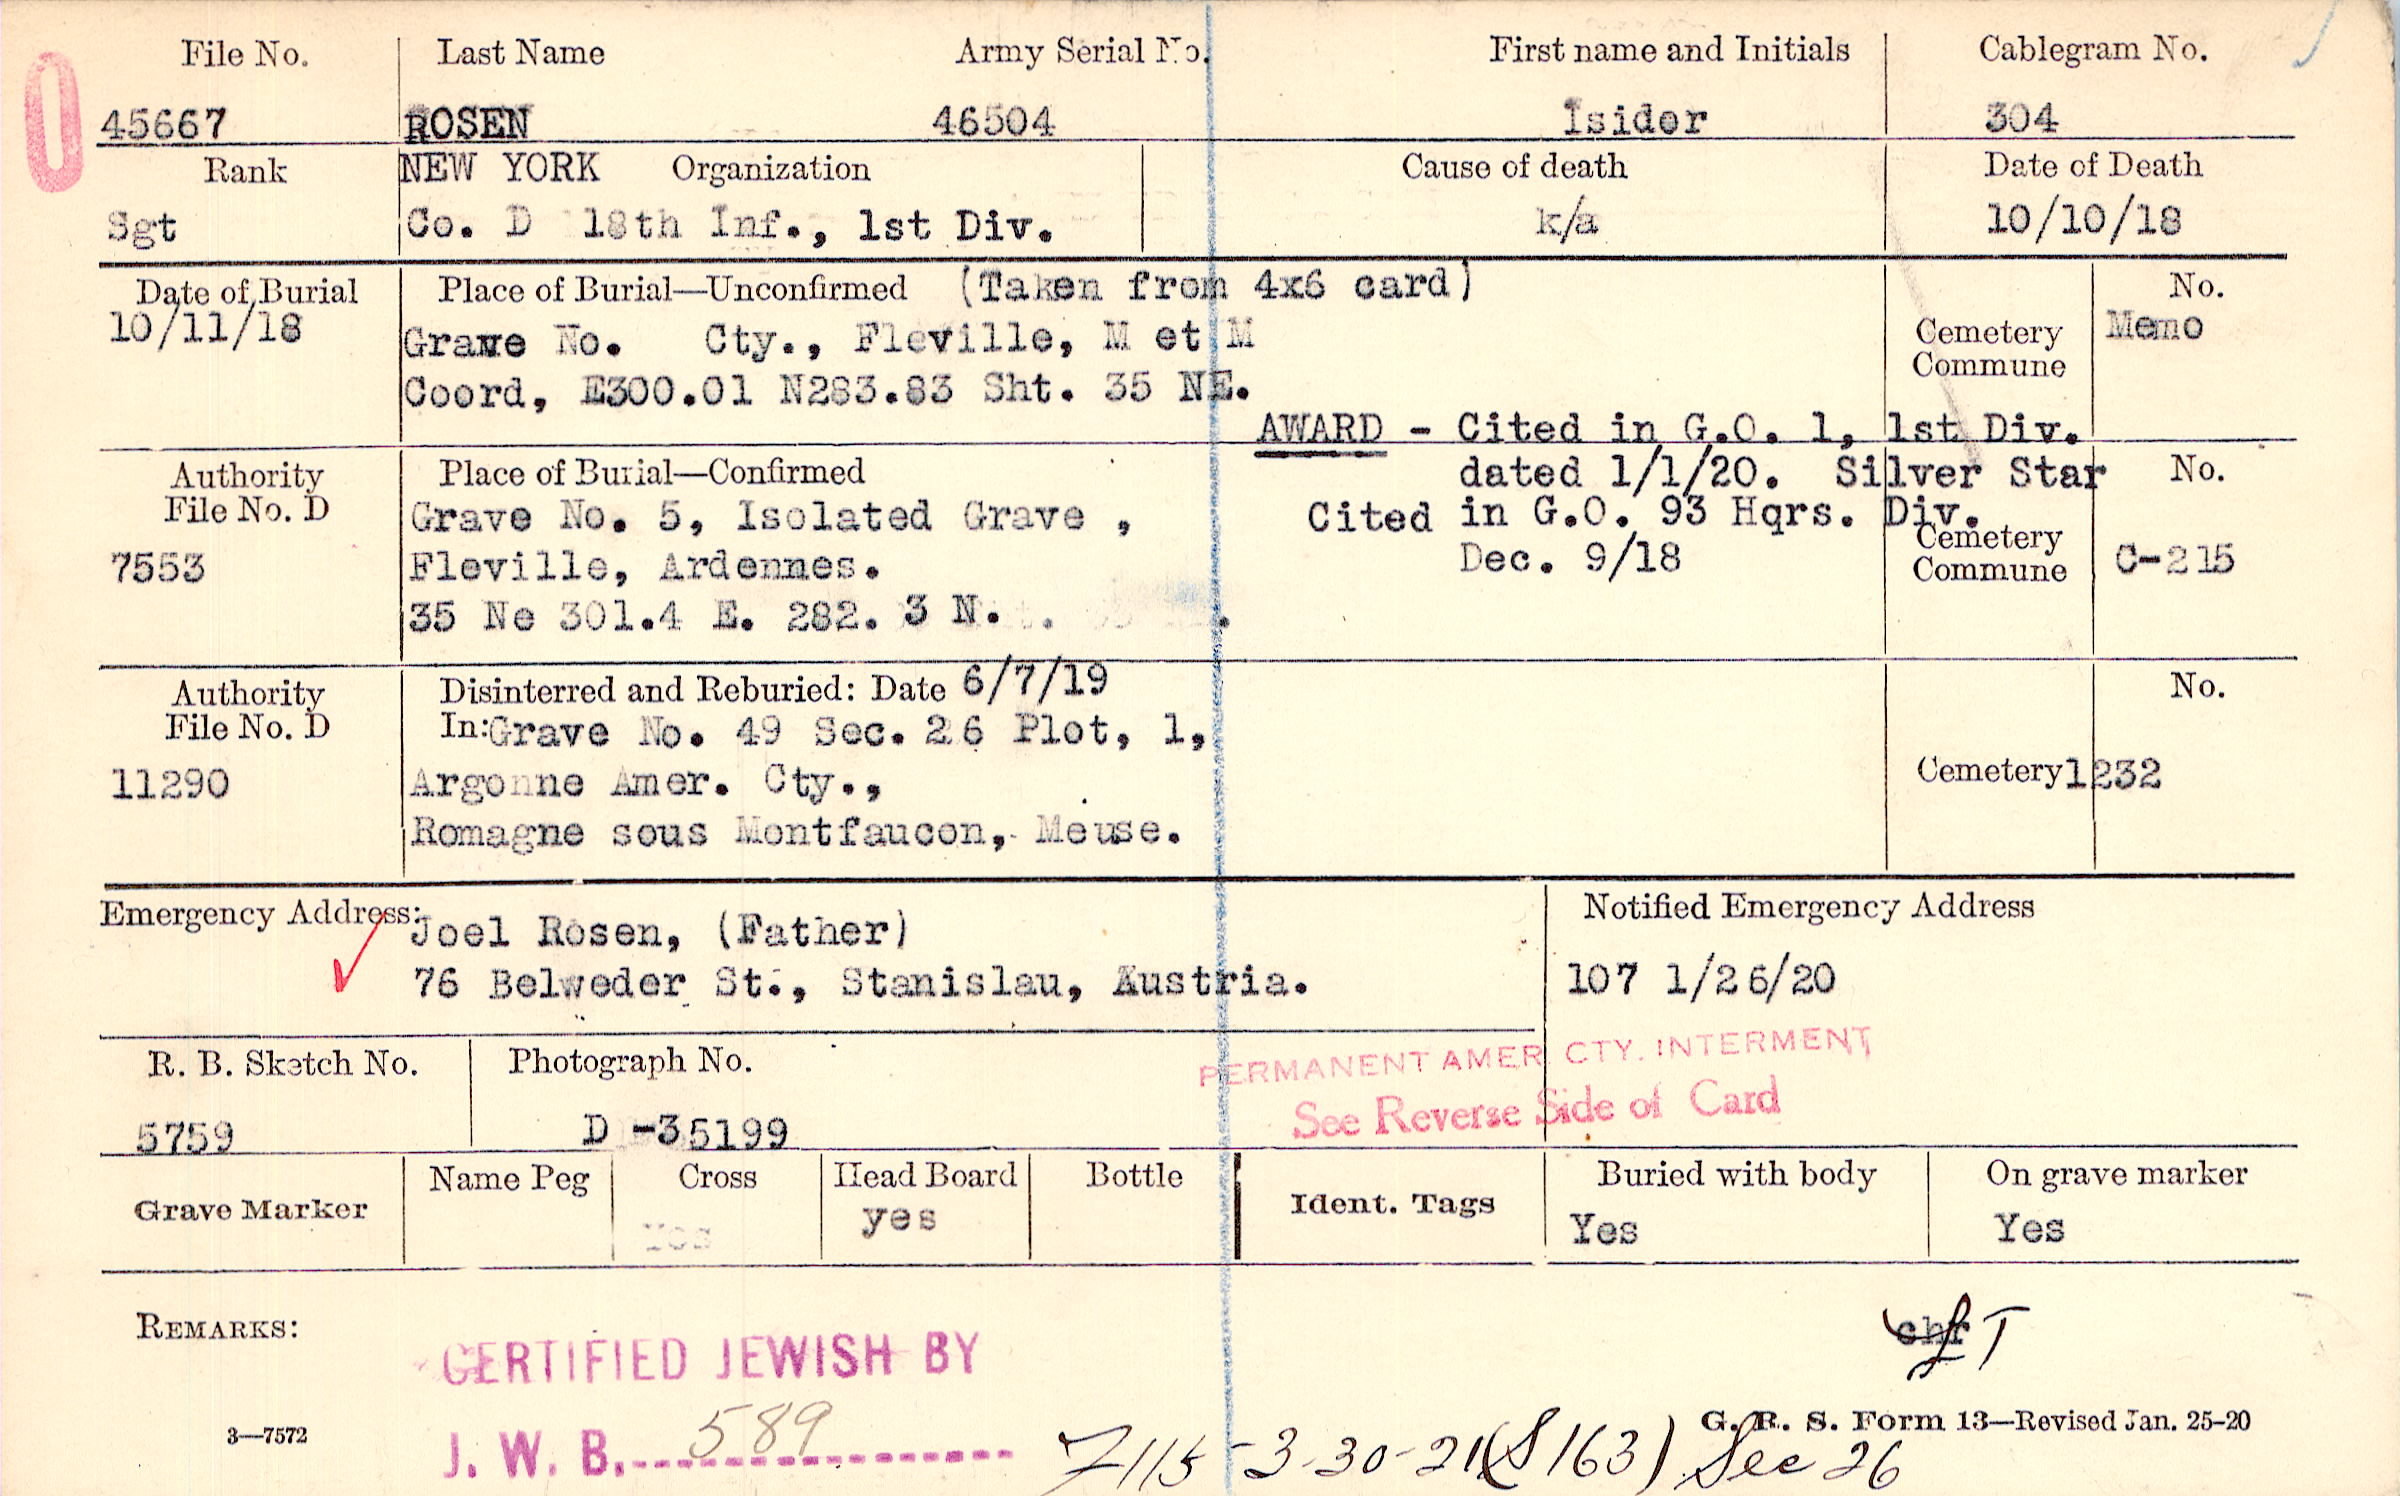 File No. Last Name Army Serial No. First name and Initials Cablegram No.
45667 ROSEN 46504 Isidor 304
Rank NEW YORK Organization Cause of death Date of Death
Sgt Co. D 18th Inf., 1st Div. k/a 10/10/18
Date of Burial Place of Burial—Unconfirmed (Taken from 4x6 card) No.
10/11/18 Grave No. Cty., Fleville, M et M Cemetery Memo
Commune
Coord, E300.01 N283.83 Sht. 35 NE.
AWARD - Cited in G.O. 1, 1st Div.
Authority Place of Burial—Confirmed dated 1/1/20. Silver Star No.
File No. D Grave No. 5, Isolated Grave , Cited in G.O. 93 Hqrs. Div.
Cemetery
7553 Fleville, Ardennes. Dec. 9/18 Commune C-215
35 Ne 301.4 E. 282. 3 N.
Authority Disinterred and Reburied: Date 6/7/19 No.
File No. D In:Grave No. 49 Sec. 26 Plot, 1,
11290 Argonne Amer. Cty., Cemetery 1232
Romagne sous Montfaucon, Meuse.
Emergency Address: Joel Rosen, (Father) Notified Emergency Address
76 Belweder St., Stanislau, Austria. 107 1/26/20
R. B. Sketch No. Photograph No. PERMANENT AMER. CTY. INTERMENT
See Reverse Side of Card
5759 D -35199
Grave Marker Name Peg Cross Head Board Bottle Ident. Tags Buried with body On grave marker
Yes yes Yes Yes
REMARKS: chr
T
CERTIFIED JEWISH BY
J. W. B. 589
3—7572 G. R. S. Form 13—Revised Jan. 25-20
7115-3-30-21(S163) Sec 26